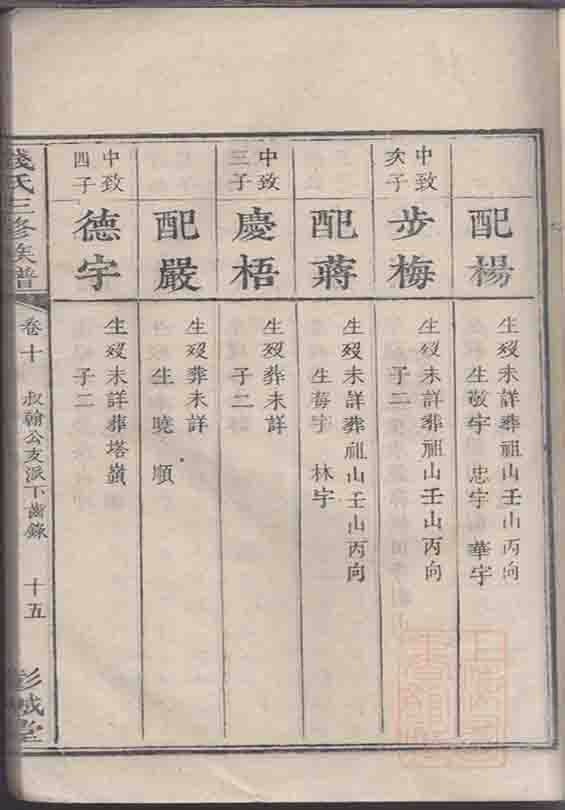 配楊
生歿未詳葬祖山壬山丙向
生敬宇 忠宇 華宇
中致
次子
步梅
生歿未詳葬祖山壬山丙向
子二
配蔣
生歿未詳葬祖山壬山丙向
生 林宇
中致
三子
慶梧
生歿葬未詳
子二
配嚴
生歿葬未詳
生 曉 順
中致
四子
德宇
生歿未詳葬塔嶺
子二
錢氏三修族譜
卷十
叔翰公支派下齒錄
十五
彭城堂